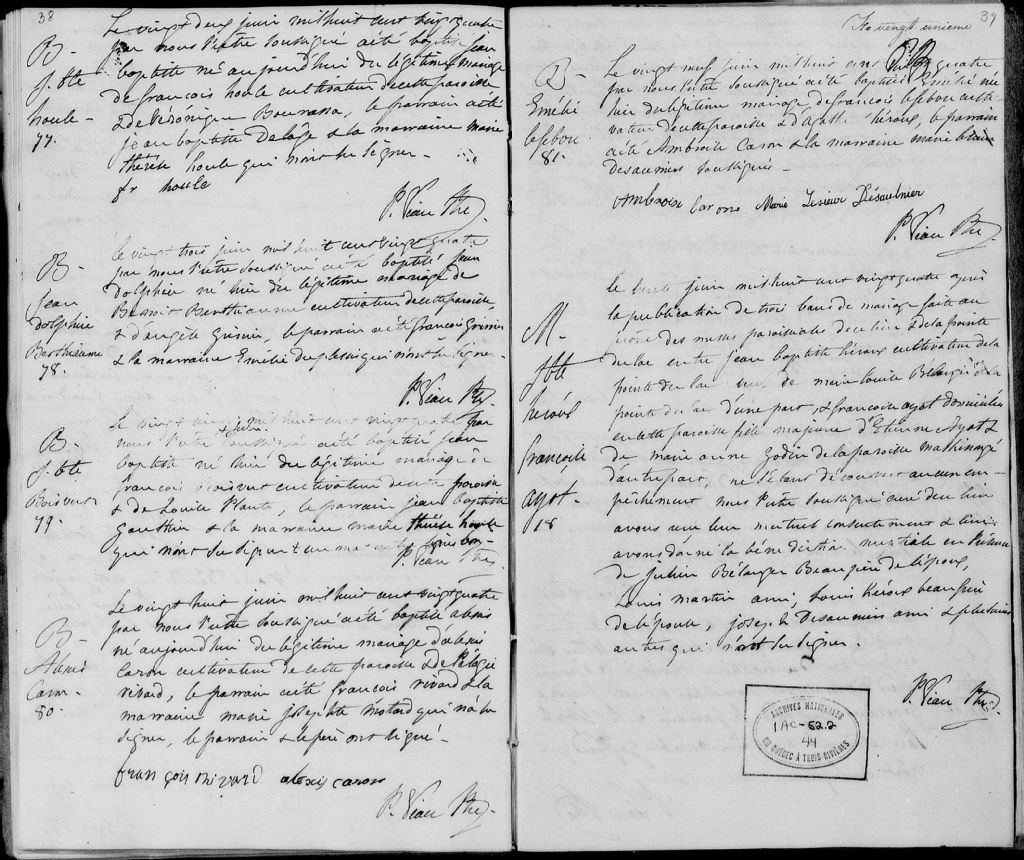 38
B-
J. Bte
houle-
77.
Le vingt deux juin mil huit cent vingt quatre
par nous Prêtre soussigné a été baptisé jean
baptiste né aujourd'hui du légitime mariage
de françois houle cultivateur de cette paroisse
& de Véronique Bourassa, le parrain a été
jean baptiste Delage & la marraine marie
thérèse houle qui n'ont su signer-
fr houle
P. Viau Ptre.
B-
jean
dolphice
Berthiaume
78.
le vingt trois juin mil huit cent vingt quatre
par nous Prêtre soussigné a été baptisé jean
dolphice né hier du légitime mariage de
Benoit Berthiaume cultivateur de cette paroisse,
& d'angèle Grenier, le parrain a été françois grenier
& la marraine Emélie duplessis qui n'ont su signer-
P. Viau Ptre.
B.
J. Bte
Boisvert
79.
Le vingt cinq juin mil huit cent vingt quatre par
nous Prêtre soussigné a été baptisé jean
baptiste né hier du légitime mariage de
françois boisvert cultivateur de cette paroisse
& de Louise Plante, le parrain jean baptiste
Gauthier & la marraine marie thérèse houle
qui n'ont su signer
P. Viau Ptre.
B-
Alexis
Caron-
80-
Le vingt huit juin mil huit cent vingt quatre
par nous Prêtre soussigné a été baptisé alexis
né aujourd'hui du légitime mariage d'alexis
Caron cultivateur de cette paroisse & de Pélagie
rivard, le parrain a été françois rivard & la
marraine marie josephte Motard qui n'a su
signer, le parrain & le père ont signé-
françois rivard alexis caron
P. Viau Ptre-
39
fo vingt unieme
B-
Emélie
lefebvre
81.
Le vingt neuf juin mil huit cent vingt quatre
par nous Prêtre soussigné a été baptisée Emélie née
hier du légitime mariage de françois lefebvre culti-
vateur de cette paroisse & d'agathe héroux, le parrain
a été Ambroise Caron & la marraine marie
desauniers soussignés-
Ambroise Carons Marie Lesieur Désaulnier
P. Viau Ptre
M-
J Bte
héroux
françoise
ayot-
18
le trente juin mil huit cent vingt quatre après
la publication de trois bans de mariage faite au
prône des messes paroissiales de ce lieu & de la pointe
du lac entre jean baptiste héroux cultivateur de la
pointe du lac veuf de marie louise Bélanger de la
pointe du lac d'une part, & françoise ayot domiciliée
en cette paroisse fille majeure d'Etienne Ayot &
de marie anne godin de la paroisse maskinongé
d'autre part, ne s'étant découvert aucun em-
pêchement nous Prêtre soussigné curé de ce lieu
avons reçu leur mutuel consentement & leur
avons donné la bénédiction nuptiale en présence
de julien Bélanger Beaupère de l'époux,
Louis martin ami, Louis héroux beaufrère
de l'épouse, joseph Desauniers ami & plusieurs
autres qui n'ont su signer.
P. Viau Ptre.
ARCHIVES NATIONALES
1AC-522
44
DU QUÉBEC À TROIS-RIVIÈRES